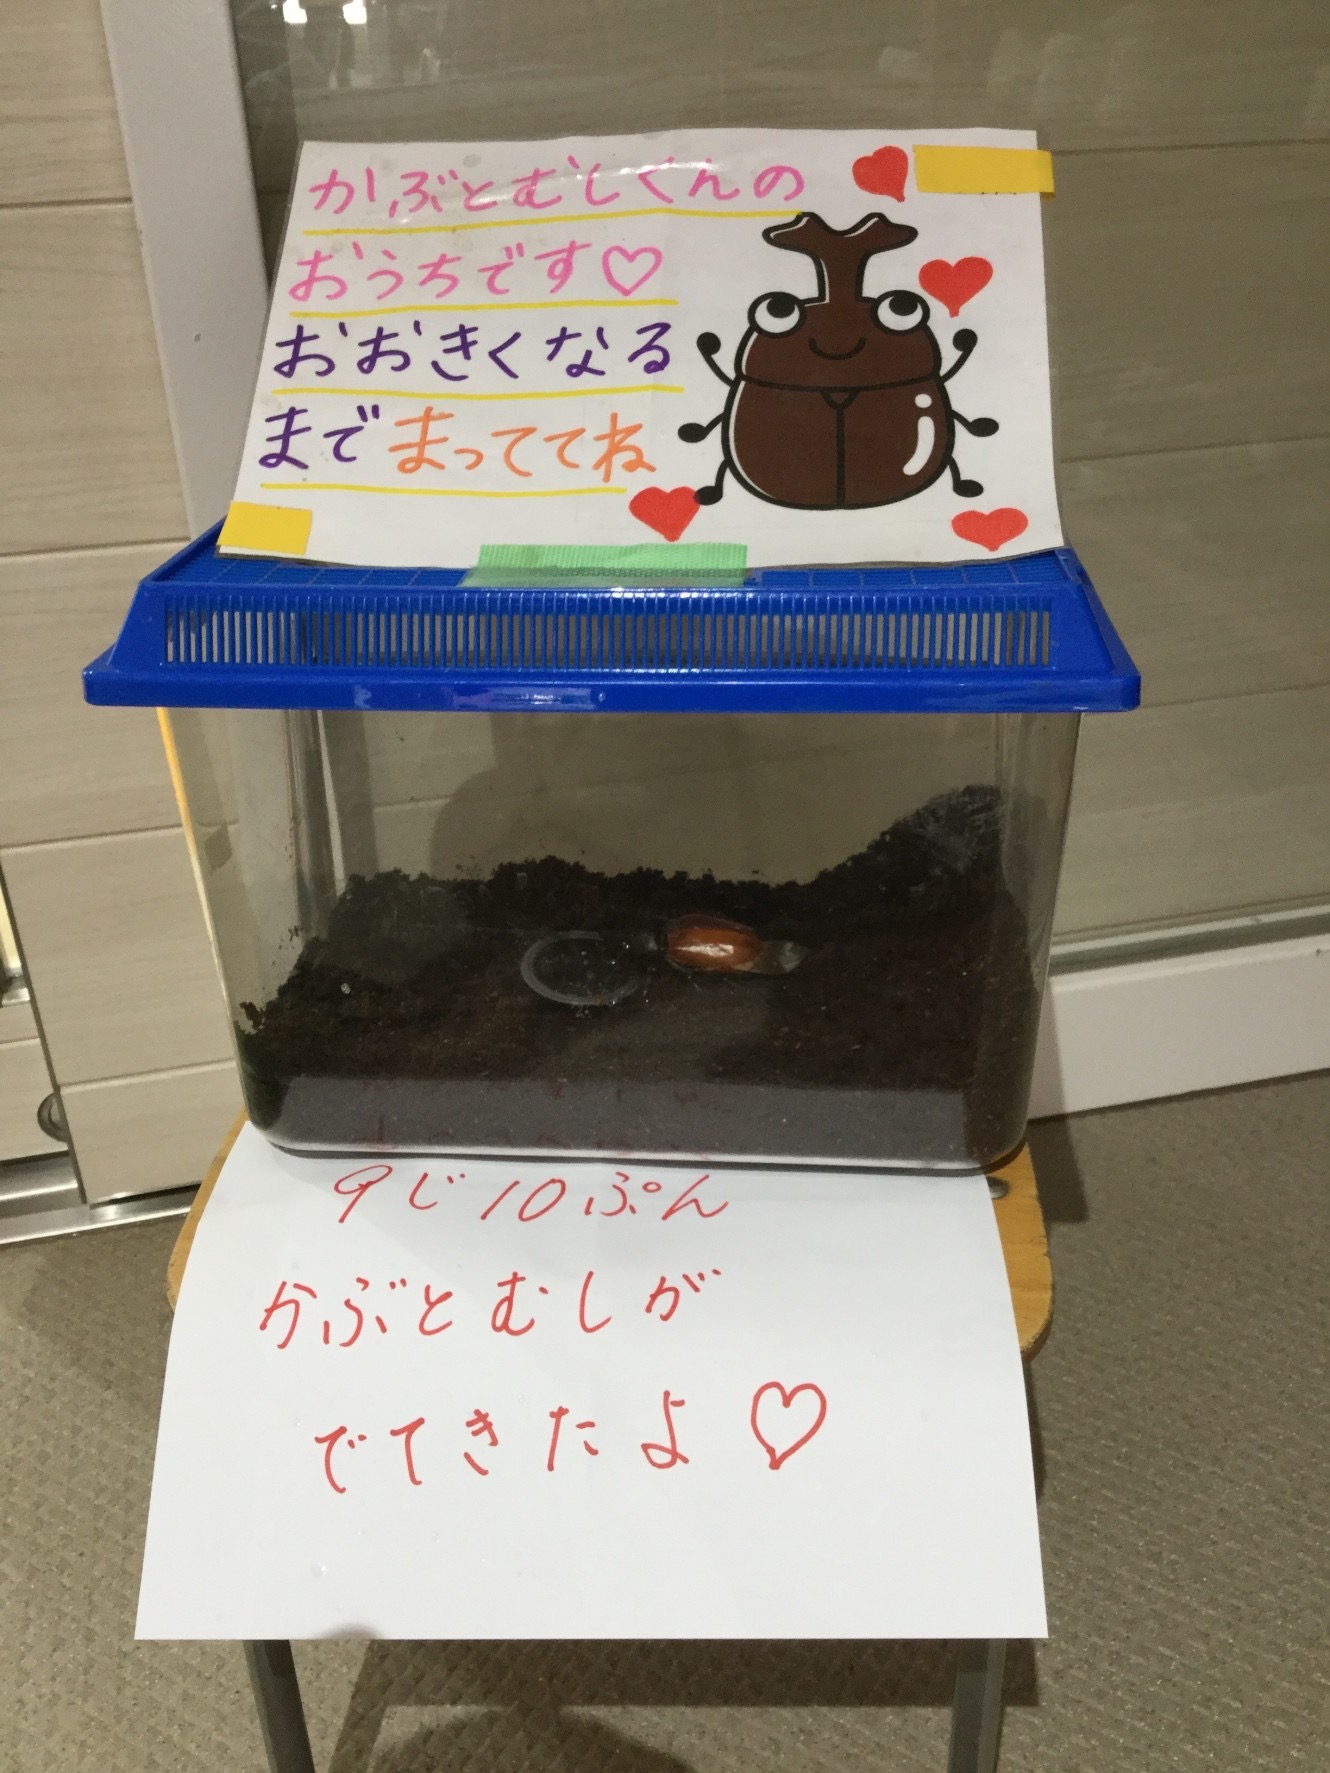 かぶとむしくんの
おうちです♡
おおきくなる
まで まっててね
9じ10ぷん
かぶとむしが
でてきたよ♡